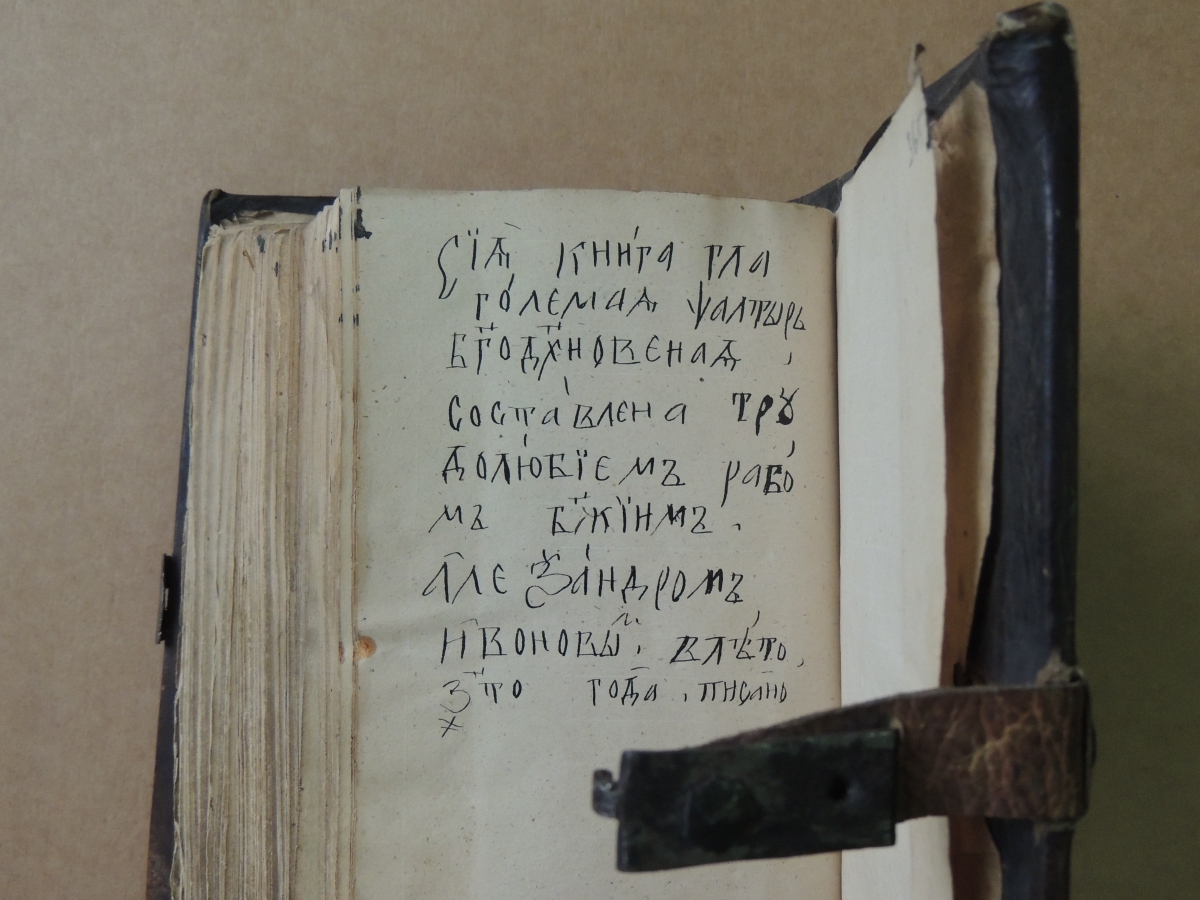 Сїѧ книга гла
големаѧ ѱалтырь
бг҃одх҃новенаѧ ,
составлена трꙋ
долюбїемъ рабо
мъ бж҃їимъ .
Алеѯандромъ
Ивоновы́й . влѣто ,
года , писано